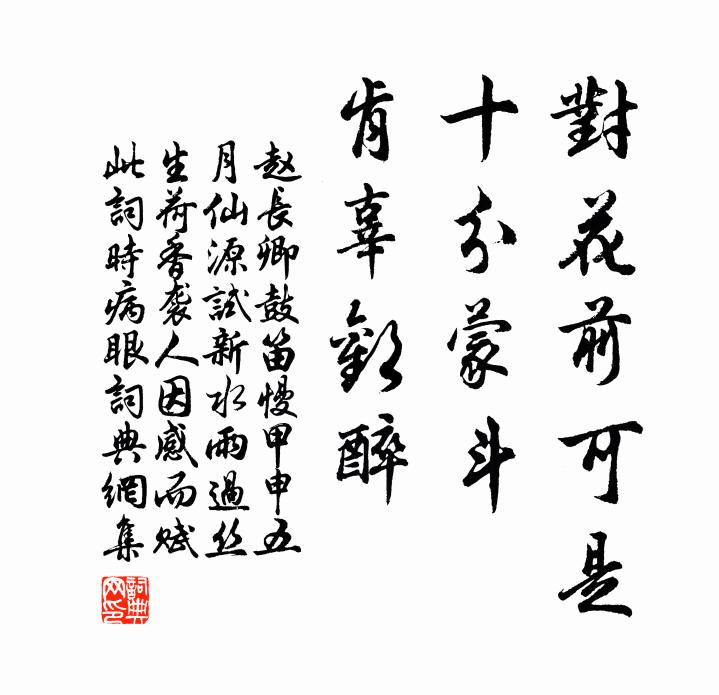 對花前可是
十分蒙斗
肯辜歡醉
赵長卿鼓笛慢甲申五
月仙源試新水雨過丝
生荷香袭人因感而赋
此詞時病眼詞典網集
詞典
网印